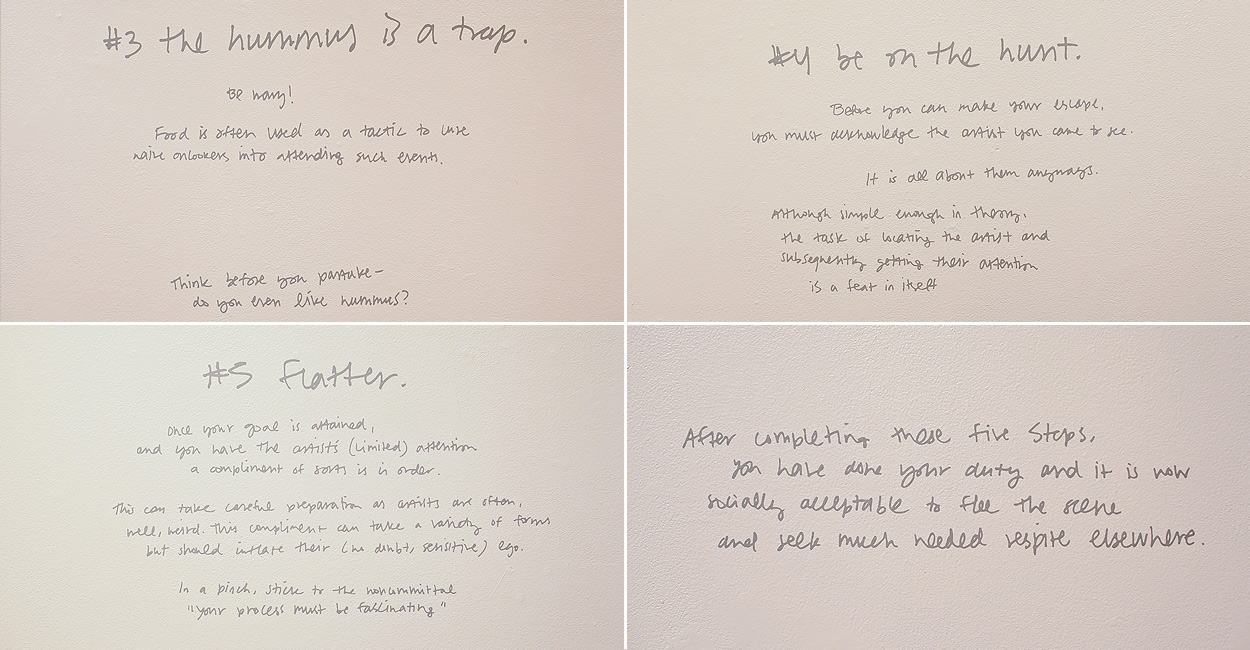 #3 the hummus is a trap.
Be wary!
Food is often used as a tactic to lure
naive onlookers into attending such events.
Think before you partake–
do you even like hummus?
#4 be on the hunt.
Before you can make your escape,
you must acknowledge the artist you came to see.
It is all about them anyways.
Although simple enough in theory,
the task of locating the artist and
subsequently getting their attention
is a feat in itself
#5 flatter.
Once your goal is attained,
and you have the artist's (limited) attention
a compliment of sorts is in order.
This can take careful preparation as artists are often,
well, weird. This compliment can take a variety of forms
but should inflate their (no doubt, sensitive) ego.
In a pinch, stick to the noncommittal
"your process must be fascinating"
After completing these five steps,
you have done your duty and it is now
socially acceptable to flee the scene
and seek much needed respite elsewhere.